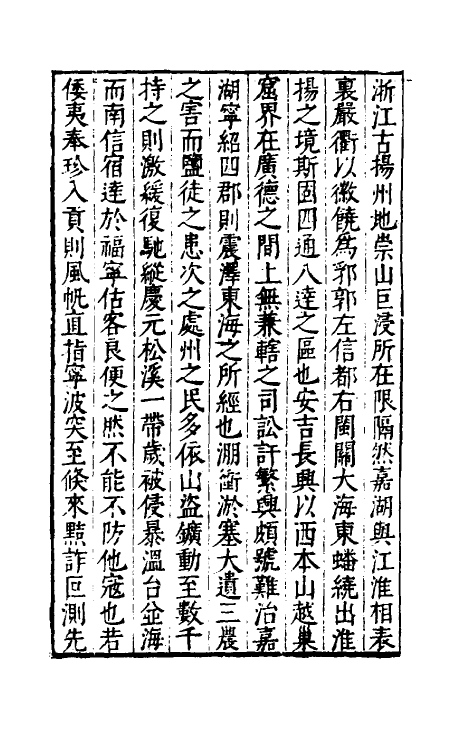 浙江古揚州地崇山巨浸所在限隔然嘉湖與江淮相表
裏嚴衢以徽饒爲郛郭左信都右閩關大海東蟠繞出淮
揚之境斯固四通八達之區也安吉長興以西本山越巢
窟界在廣德之間上無兼轄之司訟訐繁興頗號難治嘉
湖寧紹四郡則震澤東海之所經也漰衝淤塞大遺三農
之害而鹽徒之患次之處州之民多依山盜鑛動至數千
持之則激緩復馳縱慶元松溪一帶歲被侵暴溫台並海
而南信宿達於福寧估客良便之然不能不防他寇也若
倭夷奉珍入貢則風帆直指寧波突至倏來黠詐叵測先